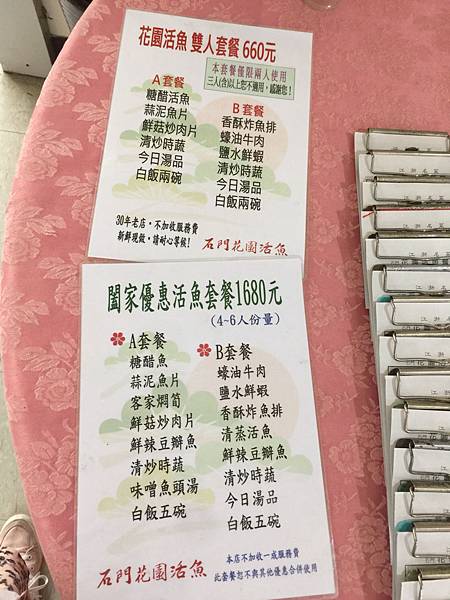 花園活魚 雙人套餐 660元
本套餐僅限兩人使用
三人(含)以上恕不適用，感謝您！
A套餐
糖醋活魚
蒜泥魚片
鮮菇炒肉片
清炒時蔬
今日湯品
白飯兩碗
B套餐
香酥炸魚排
蠔油牛肉
鹽水鮮蝦
清炒時蔬
今日湯品
白飯兩碗
30年老店，不加收服務費
新鮮現做，請耐心等候！
石門花園活魚
闔家優惠活魚套餐1680元
(4~6人份量)
A套餐
糖醋魚
蒜泥魚片
客家燜筍
鮮菇炒肉片
鮮辣豆瓣魚
清炒時蔬
味噌魚頭湯
白飯五碗
B套餐
蠔油牛肉
鹽水鮮蝦
香酥炸魚排
清蒸活魚
鮮辣豆瓣魚
清炒時蔬
今日湯品
白飯五碗
石門花園活魚
本店不加收一成服務費
此套餐恕不與其他優惠合併使用